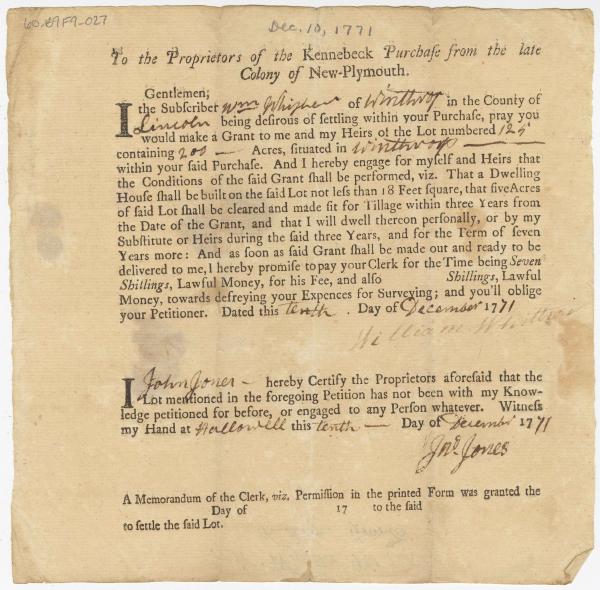 60-89F9-027
Dec. 10, 1771
To the Proprietors of the Kennebeck Purchaſe from the late
Colony of New-Plymouth.
Gentlemen;
I the Subſcriber Wm of Winthrop in the County of
Lincoln being deſirous of ſettling within your Purchaſe, pray you
would make a Grant to me and my Heirs of the Lot numbered 125
containing 200 Acres, ſituated in Winthrop
within your ſaid Purchaſe. And I hereby engage for myſelf and Heirs that
the Conditions of the ſaid Grant ſhall be performed, viz. That a Dwelling
Houſe ſhall be built on the ſaid Lot not leſs than 18 Feet ſquare, that five Acres
of ſaid Lot ſhall be cleared and made fit for Tillage within three Years from
the Date of the Grant, and that I will dwell thereon perſonally, or by my
Subſtitute or Heirs during the ſaid three Years, and for the Term of ſeven
Years more: And as ſoon as ſaid Grant ſhall be made out and ready to be
delivered to me, I hereby promiſe to pay your Clerk for the Time being Seven
Shillings, Lawful Money, for his Fee, and alſo Shillings, Lawful
Money, towards defreying your Expences for Surveying; and you'll oblige
your Petitioner. Dated this tenth . Day of December 1771
William
I John Jones — hereby Certify the Proprietors aforeſaid that the
Lot mentioned in the foregoing Petition has not been with my Know-
ledge petitioned for before, or engaged to any Perſon whatever. Witneſs
my Hand at Hallowell this tenth — Day of December 1771
Jno. Jones
A Memorandum of the Clerk, viz. Permiſſion in the printed Form was granted the
Day of 17 to the ſaid
to ſettle the ſaid Lot.